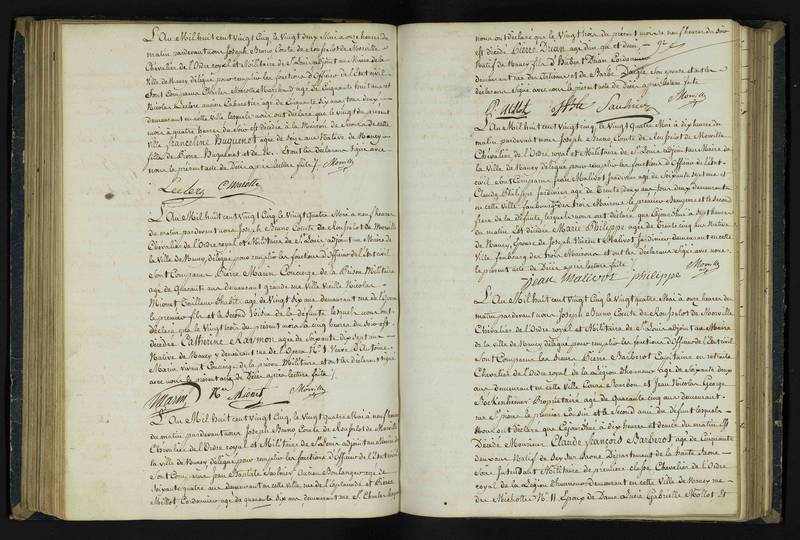 L'An Mil huit cent Vingt Cinq, le Vingt deux Mai à onze heures du
matin pardevant nous Joseph Bruno Comte de Rousselot de Morville
Chevalier de l'Ordre royal et Militaire de St Louis adjoint au Maire de la
Ville de Nancy délégué pour remplir les fonctions d'Officier de l'État civil
Sont Comparus Charles Nicolas Marchand agé de Cinquante huit ans et
Nicolas Leclerc ancien Cabaretier agé de Cinquante six ans, tous deux
demeurant en cette ville lesquels nous ont déclaré que le Vingt du présent
mois à quatre heures du soir est décédée à la Maison de Secours de cette
ville Franceline Huguenot agée de seize ans Native de Nancy
fille de Pierre Huguenot et de N. Et ont les déclarans Signé avec
nous le présent acte de Décès après lecture faite /. Morville
Leclerc
L'An Mil huit cent Vingt Cinq, le Vingt quatre Mai à neuf heures
du matin, pardevant nous Joseph Bruno Comte de Rousselot de Morville
Chevalier de l'Ordre royal et Militaire de St Louis, adjoint au Maire de
la Ville de Nancy, délégué pour remplir les fonctions d'Officier de l'État civil
Sont Comparus Pierre Marin Concierge de la Prison Militaire
agé de Quarante ans demeurant grande rue Ville Vieille Nicolas
Mionet Tailleur d'habits agé de Vingt six ans demeurant rue de l'Opera
le premier fils et le Second Voisin de la défunte lesquels nous ont
déclaré que le Vingt trois du présent mois à cinq heures du soir est
décédée Catherine Raymon agée de Soixante dix sept ans
Native de Nancy y demeurant rue de l'Opera No 1. Veuve d'Antoine
Marin vivant Concierge de la prison Militaire et ont les déclarans signé
avec nous le présent acte de Décès après lecture faite /
Marin No Mionet Morville
L'An Mil huit cent Vingt Cinq, le Vingt quatre Mai à neuf heures
du matin pardevant nous Joseph Bruno Comte de Rousselot de Morville
Chevalier de l'Ordre royal et Militaire de St Louis adjoint au Maire de
la ville de Nancy, délégué pour remplir les fonctions d'Officier de l'État civil
Sont Comparus Jean Baptiste Saulnier Ancien Boulanger agé de
Soixante quatre ans demeurant en cette ville, rue de l'esplanade et Pierre
Millot Cordonnier agé de quarante six ans, demeurant rue St Charles
nous ont déclaré que le Vingt trois du présent mois à neuf heures du soir
est décédé Pierre Drian agé d'un an et demi,
Natif de Nancy fils d'Hubert Drian Cordonnier
demeurant rue des Artisans et de Barbe Son épouse et ont les
déclarans Signé avec nous le présent acte de Décès après lecture faite
P. Millot Saulnier Morville
L'An Mil huit cent Vingt Cinq, le Vingt quatre Mai à dix heures du
matin pardevant nous Joseph Bruno Comte de Rousselot de Morville
Chevalier de l'Ordre royal et Militaire de St Louis adjoint au Maire de
la Ville de Nancy, délégué pour remplir les fonctions d'Officier de l'État
civil Sont Comparus Jean Malivot Jardinier agé de Soixante sept ans et
Claude Philippe Jardinier agé de Trente deux ans, tous deux demeurant
en cette Ville faubourg des trois Maisons le premier et le second
frère de la défunte, lesquels nous ont déclaré, que Cejourd'hui à sept heures
du matin Est décédée Marie Philippe agée de trente cinq ans Native
de Nancy, Epouse de Joseph Vincent Malivot Jardinier demeurant en cette
Ville faubourg des trois Maisons et ont les déclarans Signé avec nous
le présent acte de Décès après lecture faite / Morville
Jean Mallivot philippe
L'An Mil huit cent Vingt Cinq le Vingt quatre Mai à onze heures du
matin pardevant nous Joseph Bruno Comte de Rousselot de Morville
Chevalier de l'Ordre royal et Militaire de St Louis, adjoint au Maire
de la Ville de Nancy, délégué pour remplir les fonctions d'Officier de l'État civil
Sont Comparus les Sieurs Pierre Barberot Capitaine en retraite
Chevalier de l'Ordre royal de la Légion d'honneur agé de Soixante deux
ans demeurant en cette Ville, Cours Bourbon et Jean Nicolas George
Propriétaire agé de Quarante cinq ans demeurant
rue St le premier Cousin et le Second ami du défunt lesquels
Nous ont déclaré que Cejourd'hui à dix heures et demie du matin Est
Décédé Monsieur Claude François Barberot agé de Cinquante
deux ans Natif de Gey sur Saone Département de la haute Saone
Sous Intendant Militaire de première classe Chevalier de l'Ordre
royal de la Légion d'honneur demeurant en cette Ville de Nancy rue
des Michottes No 11. Epoux de Dame Lucie Gabrielle Mollot Et